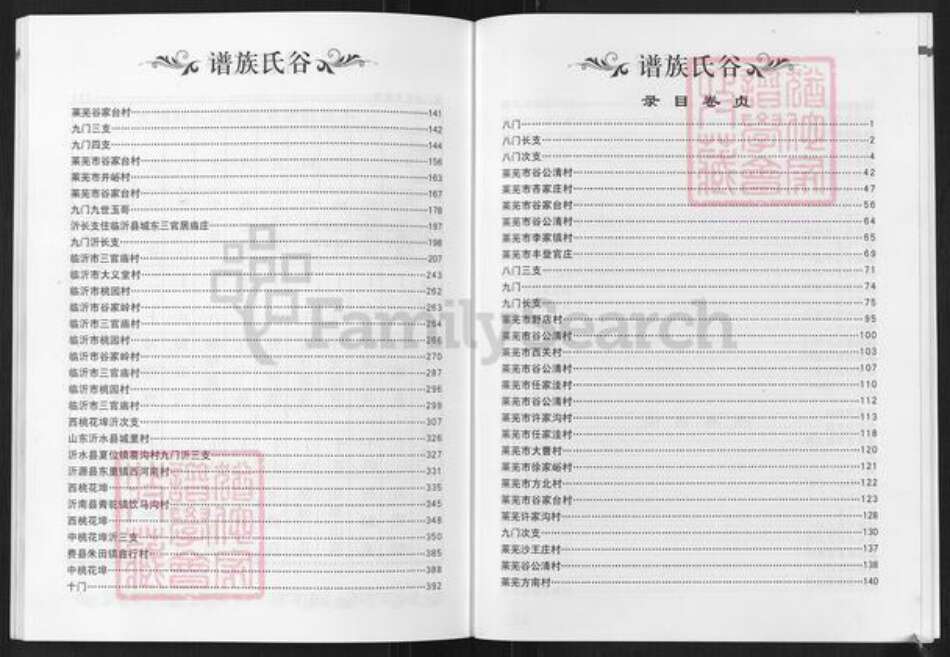 谱族氏谷
录目卷贞
八门 1
八门长支 2
八门次支 4
莱芜市谷公清村 42
莱芜市吝家庄村 47
莱芜市谷家台村 56
莱芜市谷公清村 64
莱芜市李家镇村 65
莱芜市丰登官庄 69
八门三支 71
九门 74
九门长支 75
莱芜市野店村 95
莱芜市谷公清村 100
莱芜市西关村 103
莱芜市谷公清村 107
莱芜市任家洼村 110
莱芜市谷公清村 112
莱芜市许家沟村 113
莱芜市任家洼村 118
莱芜市大曹村 120
莱芜市徐家峪村 121
莱芜市方北村 122
莱芜市谷家台村 123
莱芜许家沟村 128
九门次支 130
莱芜沙王庄村 137
莱芜谷公清村 138
莱芜方南村 140
谱族氏谷
莱芜谷家台村 141
九门三支 142
九门四支 144
莱芜市谷家台村 156
莱芜市井峪村 163
莱芜市谷家台村 167
九门九世玉哥 178
沂长支住临沂县城东三官居庙庄 197
九门沂长支 198
临沂市三官庙村 207
临沂市大义堂村 243
临沂市桃园村 262
临沂市谷家岭村 263
临沂市三官庙村 264
临沂市桃园村 266
临沂市谷家岭村 270
临沂市三官庙村 287
临沂市桃园村 296
临沂市三官庙村 299
西桃花埠沂次支 307
山东沂水县城里村 326
沂水县夏位镇 沟村九门沂三支 327
沂源县东里镇西河南村 331
西桃花埠 335
沂南县青驼镇饮马沟村 345
西桃花埠 348
中桃花埠沂三支 350
费县朱田镇 行村 385
中桃花埠 388
十门 392
FamilySearch